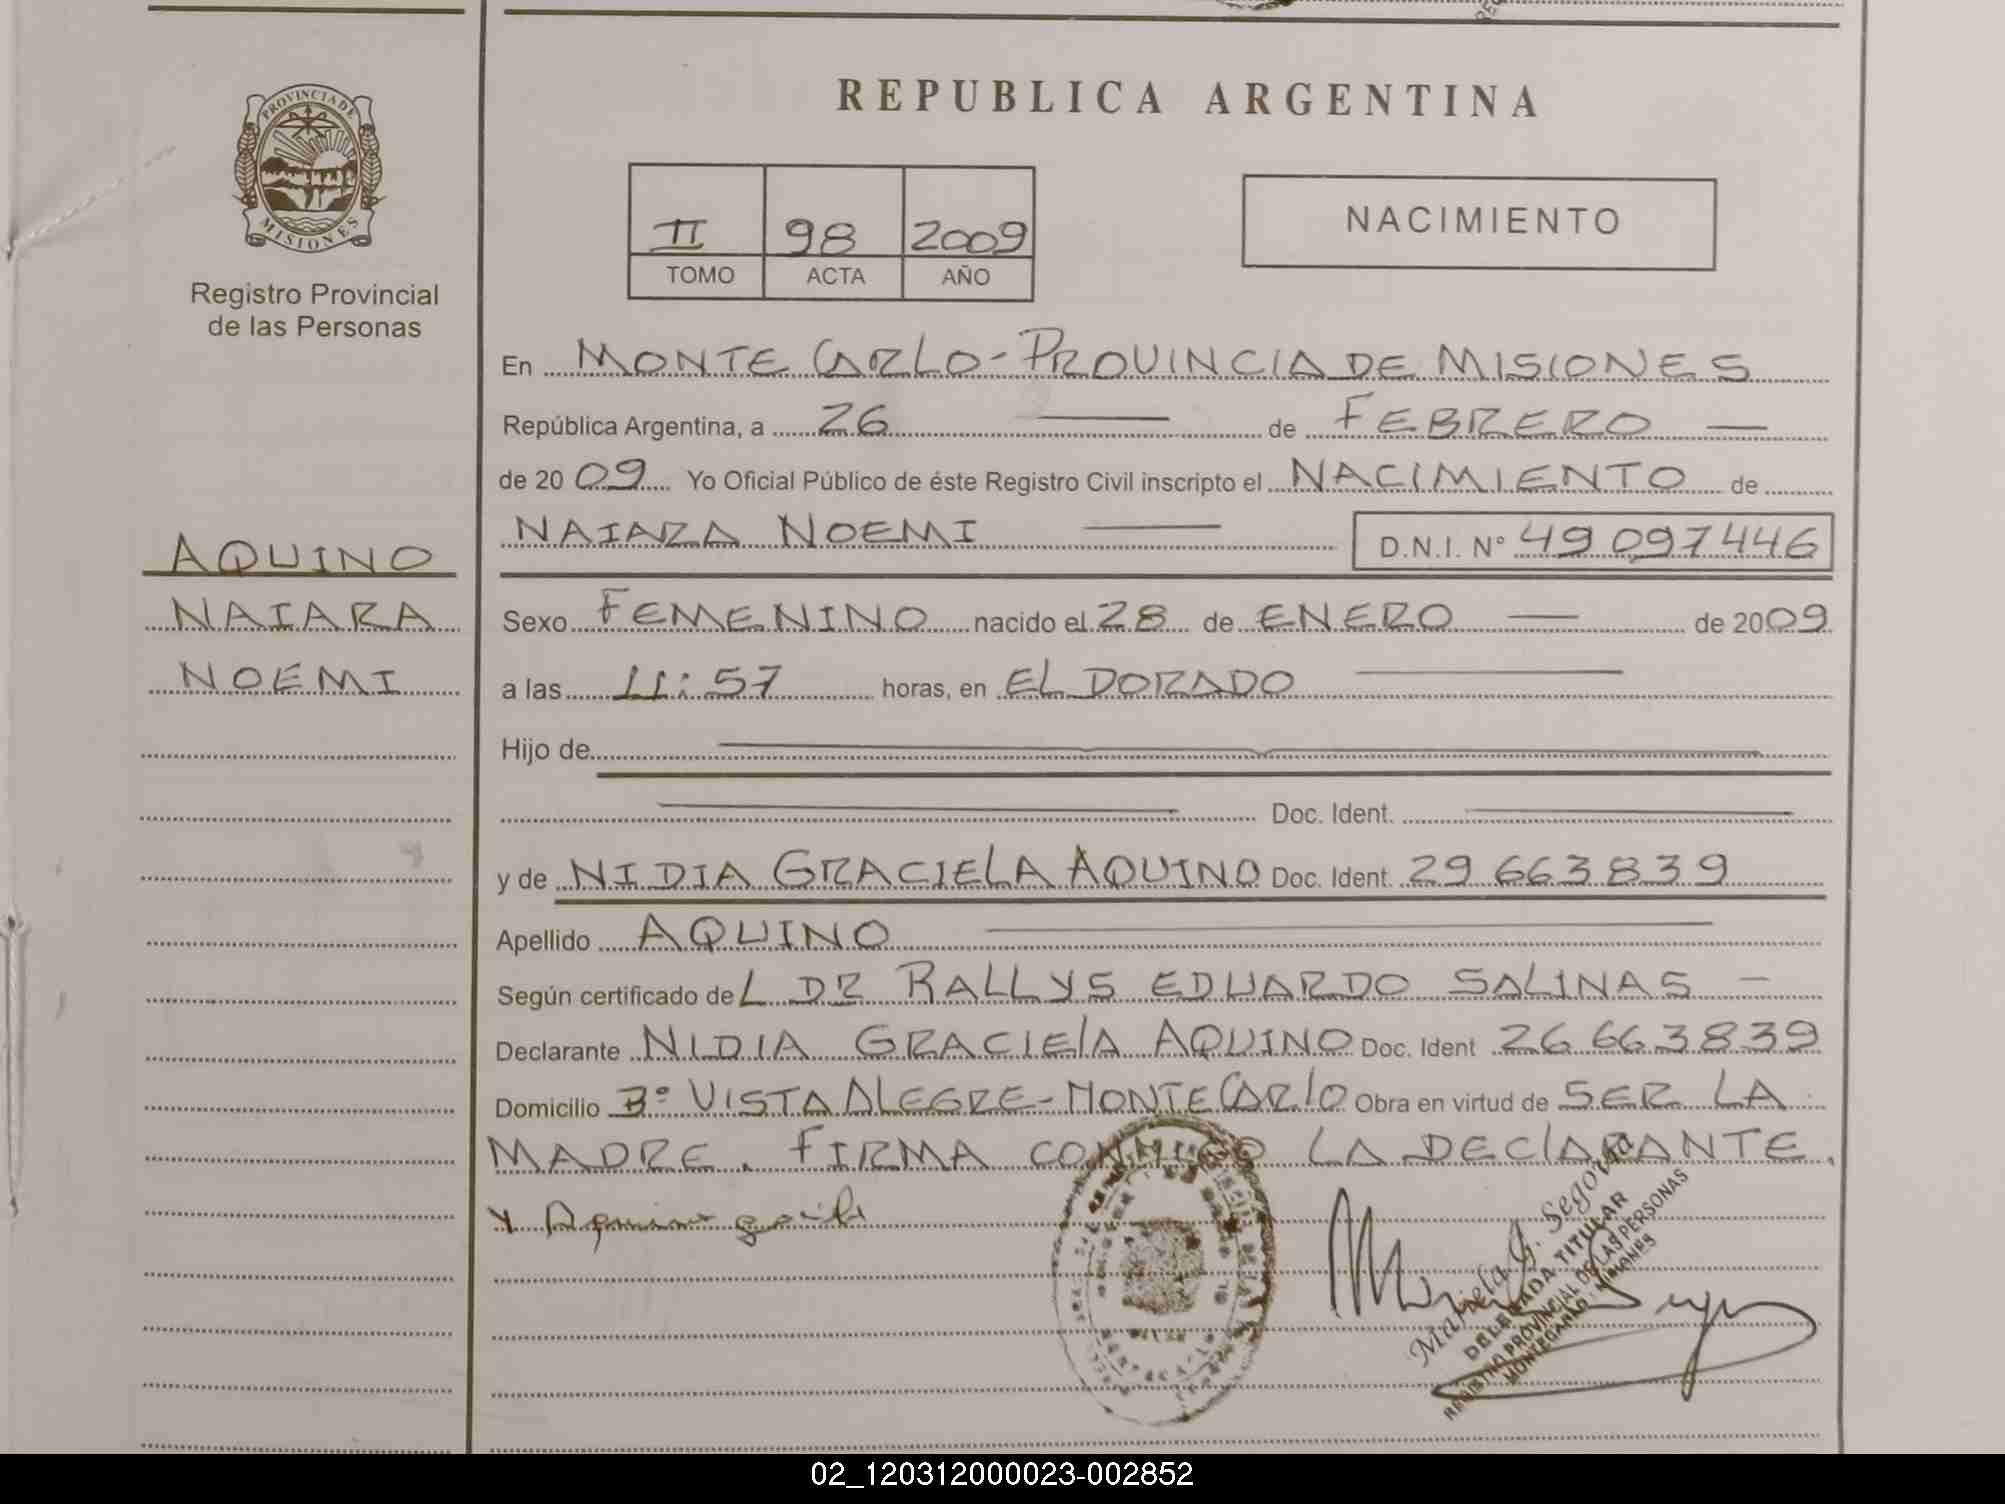 REPUBLICA ARGENTINA
PROVINCIA DE
MISIONES
Registro Provincial
de las Personas
II 98 2009
TOMO ACTA AÑO
NACIMIENTO
En MONTE CARLO - PROVINCIA DE MISIONES
República Argentina, a 26 — de FEBRERO —
de 20 09 Yo Oficial Público de éste Registro Civil inscripto el NACIMIENTO de
NAIARA NOEMI — D.N.I. N° 49 097446
AQUINO
NAIARA
NOEMI
Sexo FEMENINO nacido el 28 de ENERO — de 2009
a las 11:57 horas, en EL DORADO —
Hijo de —
— Doc. Ident. —
y de NIDIA GRACIELA AQUINO Doc. Ident. 29 663839
Apellido AQUINO —
Según certificado de L DR RALLYS EDUARDO SALINAS —
Declarante NIDIA GRACIELA AQUINO Doc. Ident 26 663839
Domicilio B° VISTA ALEGRE - MONTE CARLO Obra en virtud de SER LA
MADRE. FIRMA CONMIGO LA DECLARANTE.
Aquino
Mariela G. Segovia
DELEGADA TITULAR
REGISTRO PROVINCIAL DE LAS PERSONAS
MONTECARLO - MISIONES
02_120312000023-002852